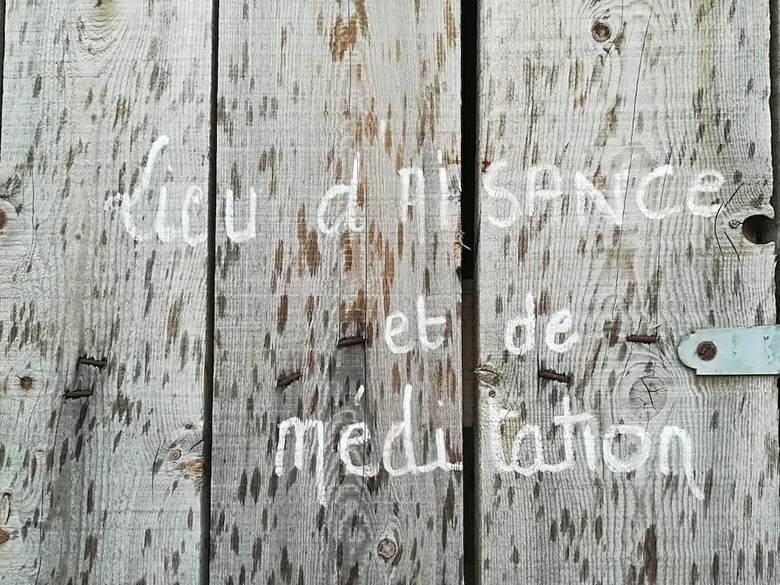 lieu d'AISANCE
et de
méditation